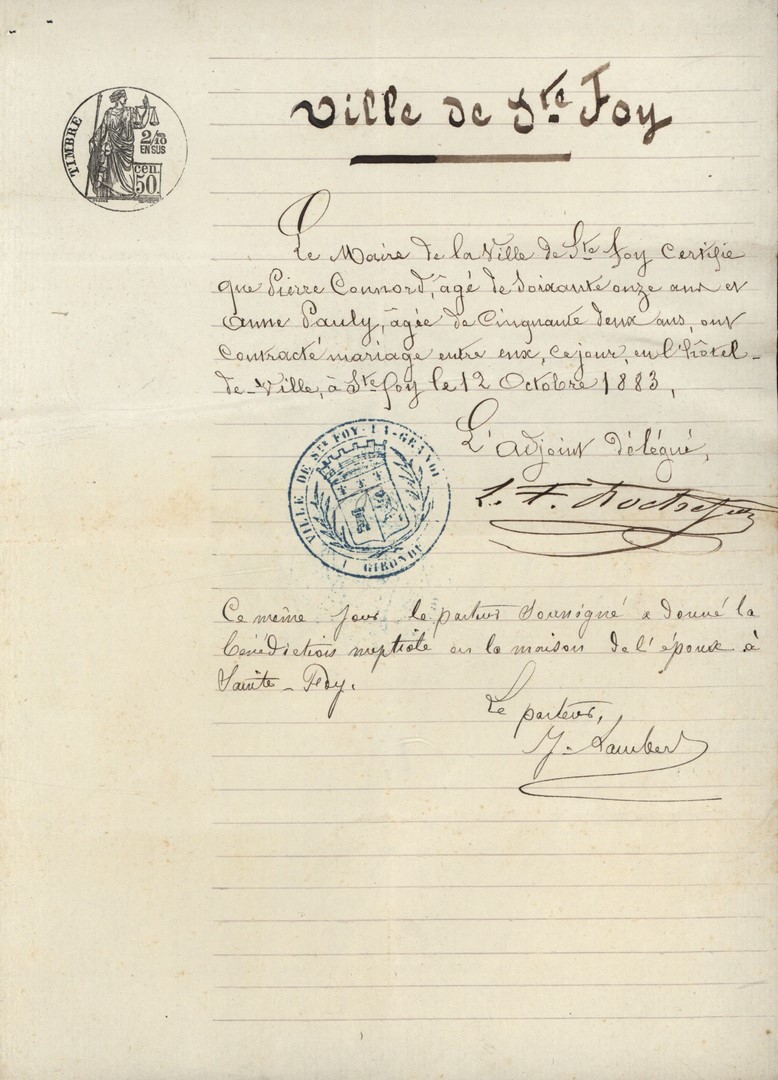 TIMBRE
2/10
EN SUS
cen.
50.
Ville de Ste Foy
Le Maire de la Ville de Ste Foy certifie
que Pierre Connord, âgé de soixante onze ans et
Anne Pauly, âgée de Cinquante deux ans, ont
contracté mariage entre eux, ce jour, en l'hôtel-
de-Ville, à Ste foy le 12 Octobre 1883,
L'adjoint délégué,
VILLE DE STE FOY-LA-GRANDE
GIRONDE
Ce même jour le pasteur soussigné a donné la
bénédiction nuptiale en la maison de l'époux à
Sainte-Foy.
Le pasteur,
J. Lambert